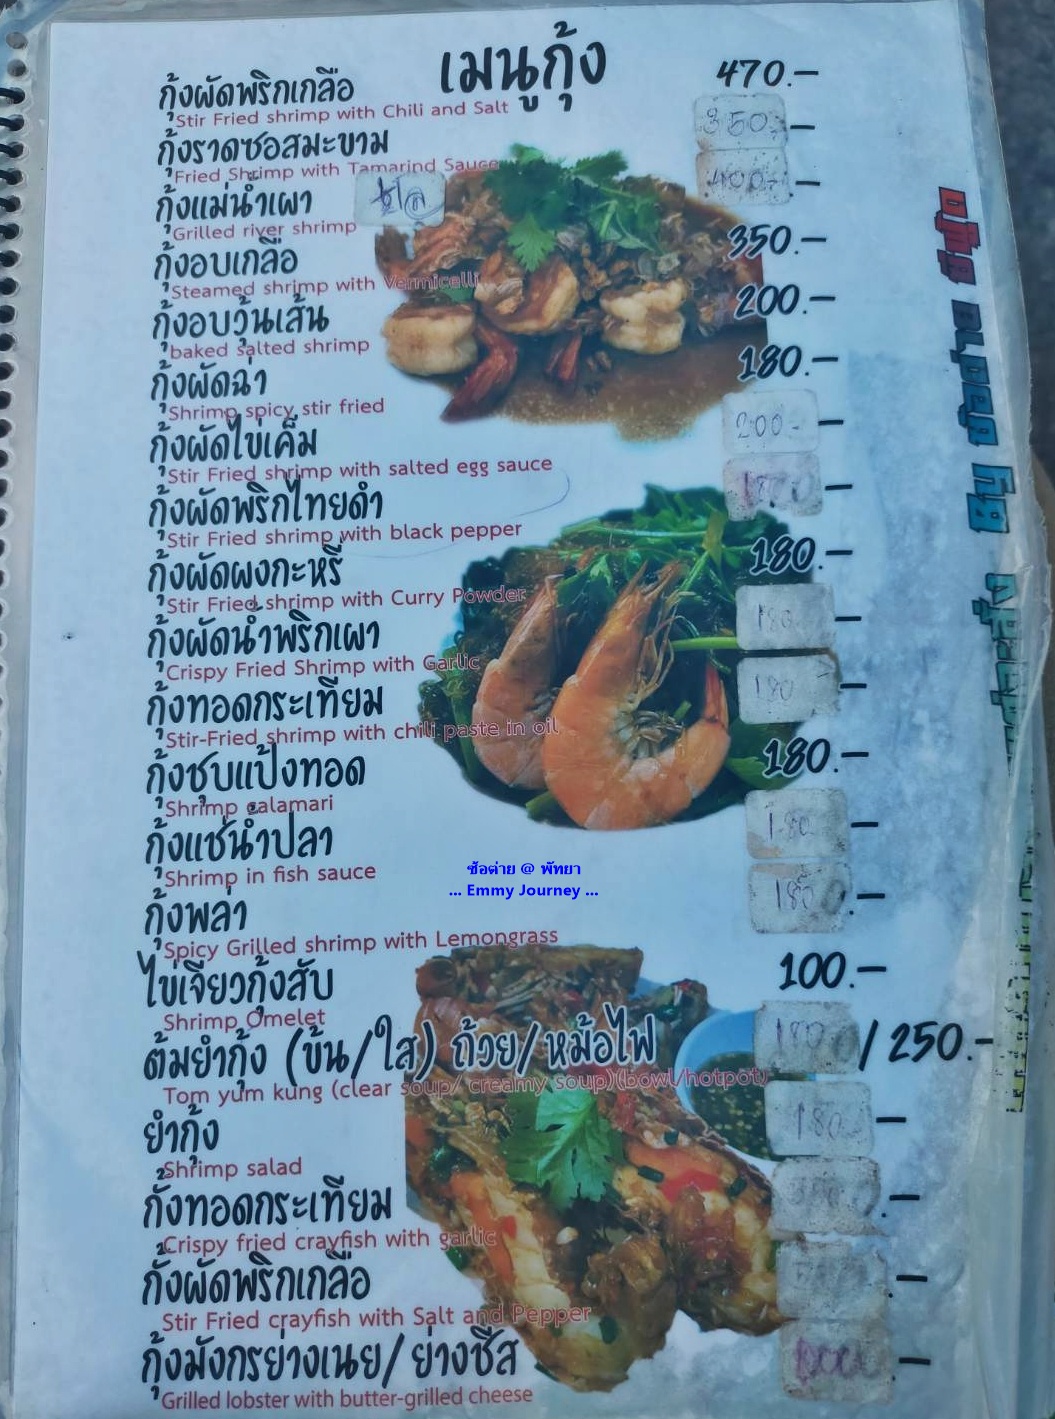 เมนูกุ้ง
กุ้งผัดพริกเกลือ 470.-
Stir Fried shrimp with Chili and Salt
กุ้งราดซอสมะขาม 350.-
Fried Shrimp with Tamarind Sauce
กุ้งแม่น้ำเผา 400.-
Grilled river shrimp
กุ้งอบเกลือ 350.-
Steamed shrimp with Vermicelli
กุ้งอบวุ้นเส้น 200.-
baked salted shrimp
กุ้งผัดฉ่า 180.-
Shrimp spicy stir fried
กุ้งผัดไข่เค็ม 200.-
Stir Fried shrimp with salted egg sauce
กุ้งผัดพริกไทยดำ -
Stir Fried shrimp with black pepper
กุ้งผัดผงกะหรี่ 180.-
Stir Fried shrimp with Curry Powder
กุ้งผัดน้ำพริกเผา 180.-
Crispy Fried Shrimp with Garlic
กุ้งทอดกระเทียม 180.-
Stir-Fried shrimp with chili paste in oil
กุ้งชุบแป้งทอด 180.-
Shrimp calamari
กุ้งแช่น้ำปลา 180.-
Shrimp in fish sauce
กุ้งพล่า 180.-
Spicy Grilled shrimp with Lemongrass
ไข่เจียวกุ้งสับ 100.-
Shrimp Omelet
ต้มยำกุ้ง (ข้น/ใส) ถ้วย/หม้อไฟ 180/250.-
Tom yum kung (clear soup/ creamy soup)(bowl/hotpot)
ยำกุ้ง 180.-
Shrimp salad
กั้งทอดกระเทียม .-
Crispy fried crayfish with garlic
กั้งผัดพริกเกลือ .-
Stir Fried crayfish with Salt and Pepper
กุ้งมังกรย่างเนย/ ย่างชีส .-
Grilled lobster with butter-grilled cheese
By ซ้อต่าย ซีฟู้ด
ซ้อต่าย @ พัทยา
... Emmy Journey ...